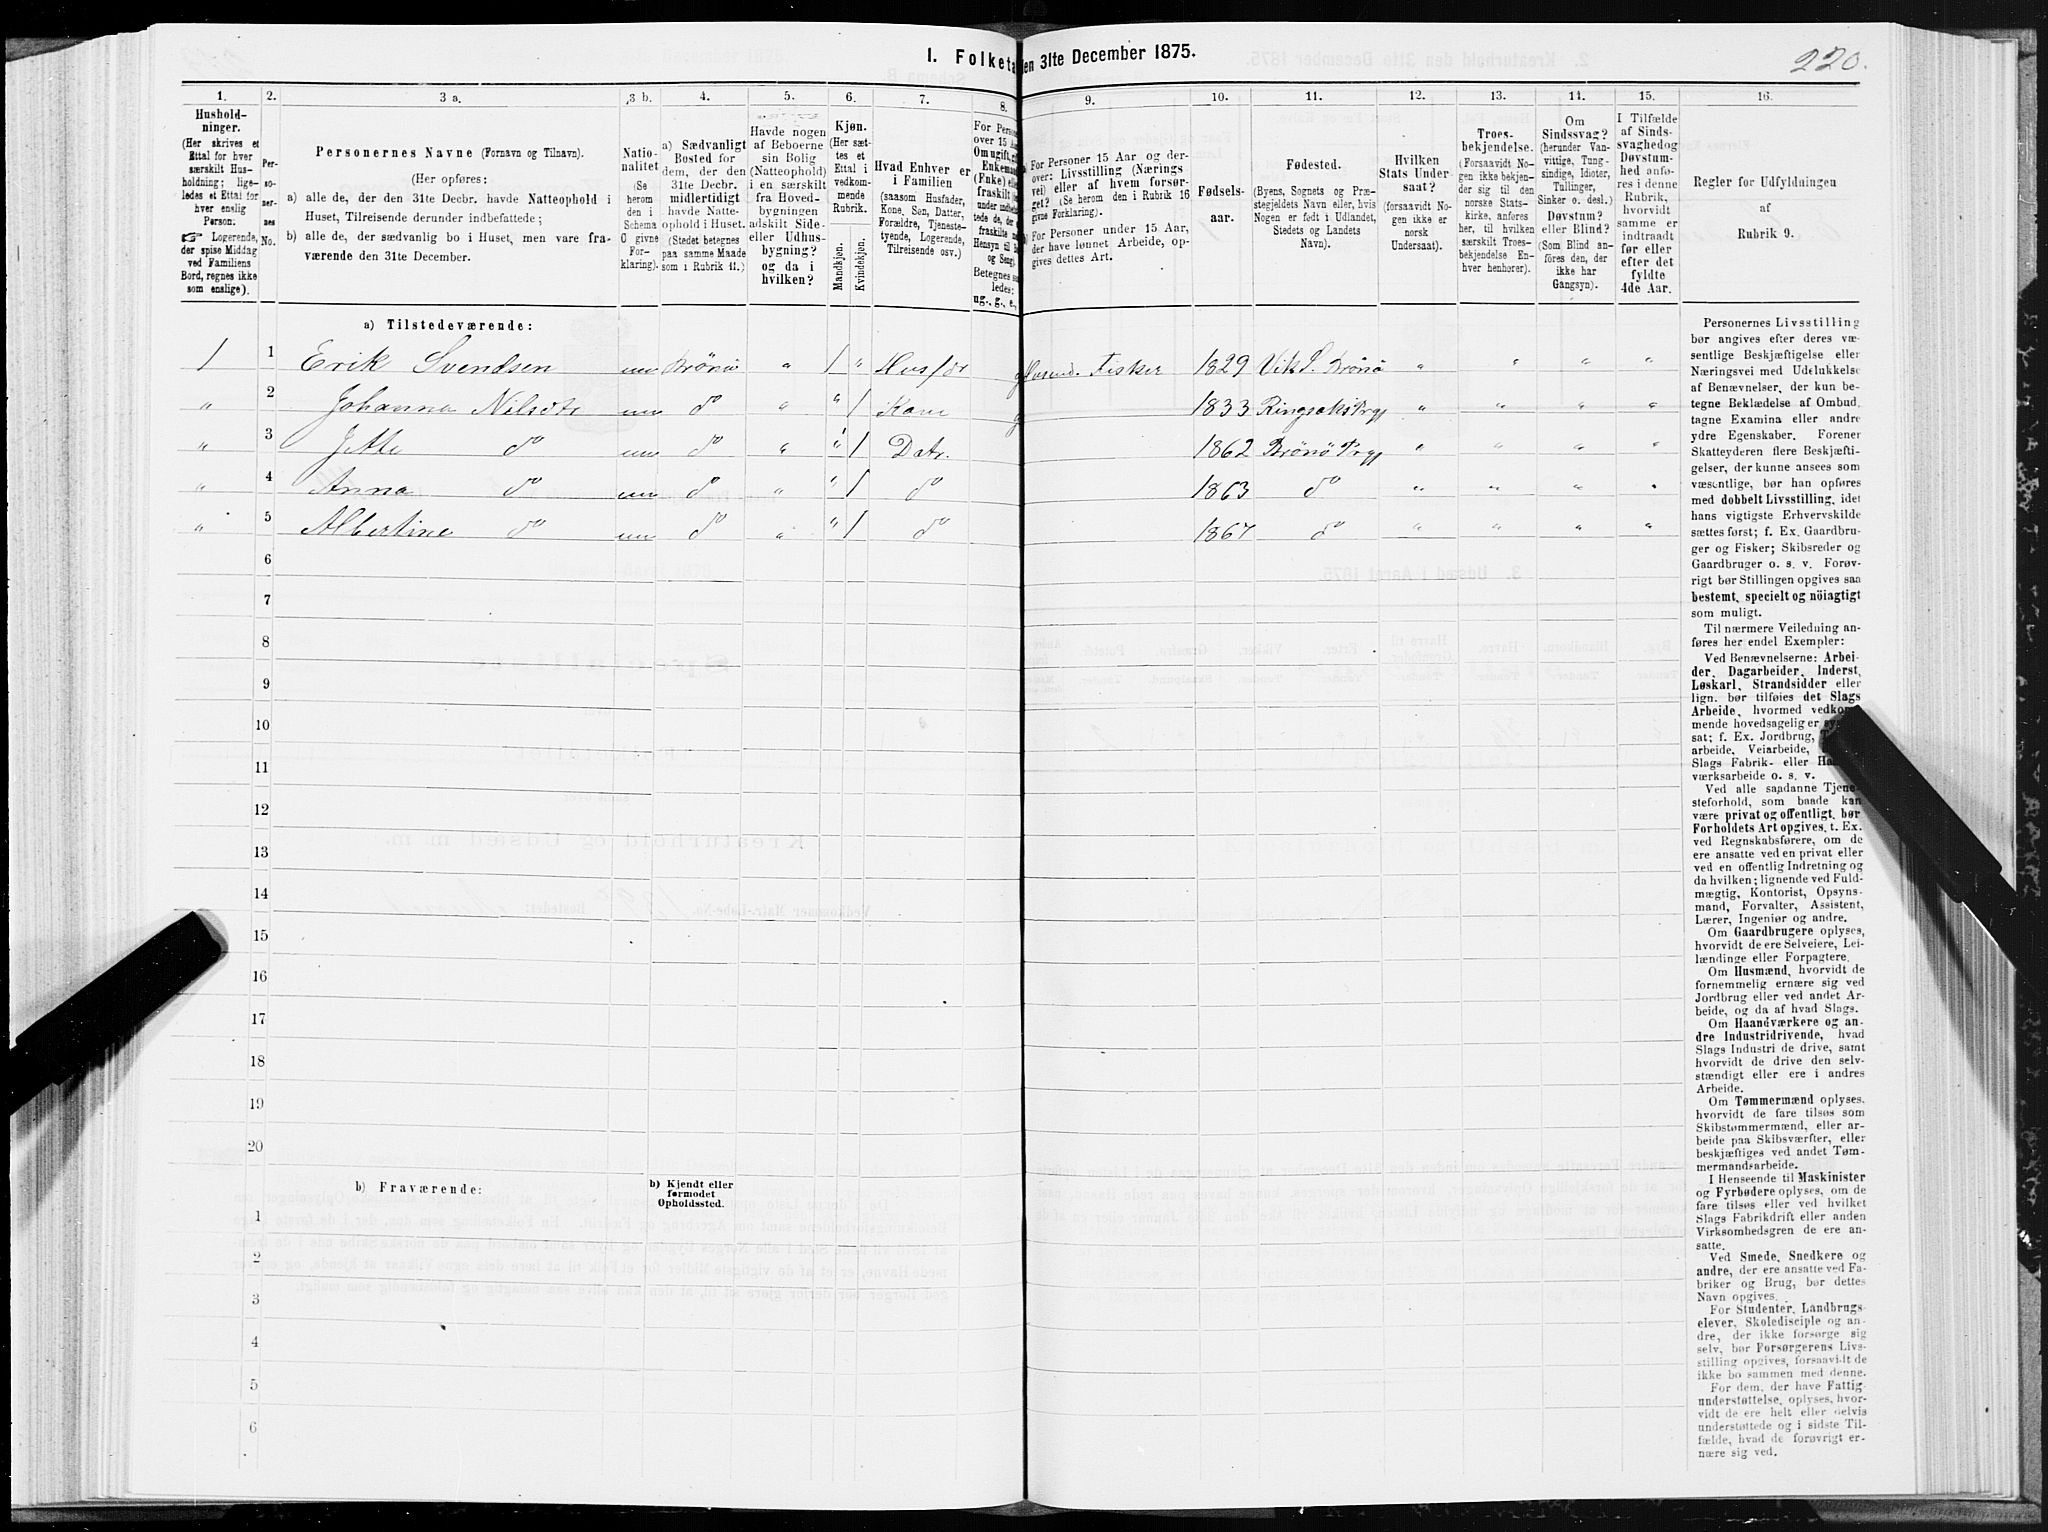 I. Folketa en 31te December 1875.
220.
1. 2. 3 a. 3 b. 4. 5. 6. 7. 8. 9. 10. 11. 12. 13. 14. 15. 16.
Hushold-
ninger.
(Her skrives et
Ettal for hver
særskilt Hus-
holdning; lige-
ledes et Ettal for
hver enslig
Person.
☞ Logerende,
der spise Middag
ved Familiens
Bord, regnes ikke
som enslige).
Per-
so-
ner-
nes
No.
Personernes Navne (Fornavn og Tilnavn).
(Her opføres:
a) alle de, der den 31te Decbr. havde Natteophold i
Huset, Tilreisende derunder indbefattede;
b) alle de, der sædvanlig bo i Huset, men vare fra-
værende den 31te December.
Natio-
nalitet
(Se
herom
den i
Schema
C givne
For-
klaring).
a) Sædvanligt
Bosted for
dem, der den
31te Decbr.
midlertidigt
havde Natte-
ophold i Huset.
(Stedet betegnes
paa samme Maade
som i Rubrik 11.)
Havde nogen
af Beboerne
sin Bolig
(Natteophold)
i en særskilt
fra Hoved-
bygningen
adskilt Side-
eller Udhus-
bygning?
og da i
hvilken?
Kjøn.
(Her sæt-
tes et
Ettal i
vedkom-
mende
Rubrik.
Mandkjøn.
Kvindekjøn.
Hvad Enhver er
i Familien
(saasom Husfader,
Kone, Søn, Datter,
Forældre, Tjeneste-
tyende, Logerende,
Tilreisende osv.)
For Person
over 15 A
Om ugift, gif
Enkeman
(Enke) elle
fraskilt
under indbefat-
tede de, der e
fraskilte m
Hensyn til b
og Seng)
Betegnes sa
ledes:
ug., g., e.,
For Personer 15 Aar og der-
over: Livsstilling (Nærings-
vei) eller af hvem forsør-
get? (Se herom den i Rubrik 16
givne Forklaring).
For Personer under 15 Aar,
der have lønnet Arbeide, op-
gives dettes Art.
Fødsels-
aar.
Fødested.
(Byens, Sognets og Præ-
stegjeldets Navn eller, hvis
Nogen er født i Udlandet,
Stedets og Landets
Navn).
Hvilken
Stats Under-
saat?
(forsaavidt No-
gen ikke er
norsk
Undersaat).
Troes-
bekjendelse.
(Forsaavidt No-
gen ikke bekjen-
der sig til den
norske Stats-
kirke, anføres
her, til hvilken
særskilt Troes-
bekjendelse En-
hver henhører).
Om
Sindssvag?
(herunder Van-
vittige, Tung-
sindige, Idioter,
Tullinger,
Sinker o. desl.)
Døvstum?
eller Blind?
(Som Blind an-
føres den, der
ikke har
Gangsyn).
I Tilfælde
af Sinds-
svaghed og
Døvstum-
hed anfø-
res i denne
Rubrik,
hvorvidt
samme er
indtraadt
før eller
efter det
fyldte
4de Aar.
Regler for Udfyldningen
af
Rubrik 9.
a) Tilstedeværende:
1 1 Erik Svendsen nn Brönö „ 1 „ Husfdr g Husmd. Fisker 1829 Vik S. Brönö „ „ „ „
„ 2 Johanna Nilsdtr nn do „ „ 1 Kone g 1833 Ringsakr Prgj „ „ „ „
„ 3 Jette do nn do „ „ 1 Datr. 1862 Brönö Prgj „ „ „ „
„ 4 Anna do nn do „ „ 1 do 1863 do „ „ „ „
„ 5 Albertine do nn do „ „ 1 do 1867 do „ „ „ „
6
7
8
9
10
11
12
13
14
15
16
17
18
19
20
b) Fraværende:
b) Kjendt eller
formodet
Opholdssted.
1
2
3
4
5
6
Personernes Livsstilling
bør angives efter deres væ-
sentlige Beskjæftigelse eller
Næringsvei med Udelukkelse
af Benævnelser, der kun be-
tegne Beklædelse af Ombud,
tagne Examina eller andre
ydre Egenskaber. Forener
Skatteyderen flere Beskjæfti-
gelser, der kunne ansees som
væsentlige, bør han opføres
med dobbelt Livsstilling, idet
hans vigtigste Erhvervskilde
sættes først; f. Ex. Gaardbru-
ger og Fisker; Skibsreder og
Gaardbruger o. s. v. Forøv-
rigt bør Stillingen opgives saa
bestemt, specielt og nöiagtigt
som muligt.
Til nærmere Veiledning an-
føres her endel Exempler:
Ved Benævnelserne: Arbei-
der, Dagarbeider, Inderst,
Løskarl, Strandsidder eller
lign. bør tilføies det Slags
Arbeide, hvormed vedkom-
mende hovedsagelig er sys
sat; f. Ex. Jordbrug, T
arbeide, Veiarbeide,
Slags Fabrik- eller Ha
værksarbeide o. s. v.
Ved alle saadanne Tjene-
steforhold, som baade kan
være privat og offentligt, bør
Forholdets Art opgives, t. Ex.
ved Regnskabsførere, om de
ere ansatte ved en privat eller
ved en offentlig Indretning og
da hvilken; lignende ved Fuld-
mægtig, Kontorist, Opsyns-
mand, Forvalter, Assistent,
Lærer, Ingeniør og andre.
Om Gaardbrugere oplyses,
hvorvidt de ere Selveiere, Lei-
lændinge eller Forpagtere.
Om Husmænd, hvorvidt de
fornemmelig ernære sig ved
Jordbrug eller ved andet Ar-
beide, og da af hvad Slags.
Om Haandværkere og an-
dre Industridrivende, hvad
Slags Industri de drive, samt
hvorvidt de drive den selv-
stændigt eller ere i andres
Arbeide.
Om Tømmermænd oplyses,
hvorvidt de fare tilsøs som
Skibstømmermænd, eller ar-
beide paa Skibsværfter, eller
beskjæftiges ved andet Tøm-
mermandsarbeide.
I Henseende til Maskinister
og Fyrbødere oplyses, om de
fare tilsøs eller ved hvilket
Slags Fabrikdrift eller anden
Virksomhedsgren de ere an-
satte.
Ved Smede, Snedkere og
andre, der ere ansatte ved Fa-
briker og Brug, bør dettes
Navn opgives.
For Studenter, Landbrugs-
elever, Skoledisciple og an-
dre, der ikke forsørge sig
selv, bør Forsørgerens Livs-
stilling opgives, forsaavidt de
ikke bo sammen med denne.
For dem, der have Fattig-
understøttelse, oplyses, hvor-
vidt de ere helt eller delvis
understøttede og i sidste Til-
fælde, hvad de forøvrigt er-
nære sig ved.